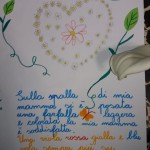 Sulla spalla di mia
mamma si è posata
una farfalla leggera
e colorata la mia mamma
è soddisfatta
rossa gialla e blu